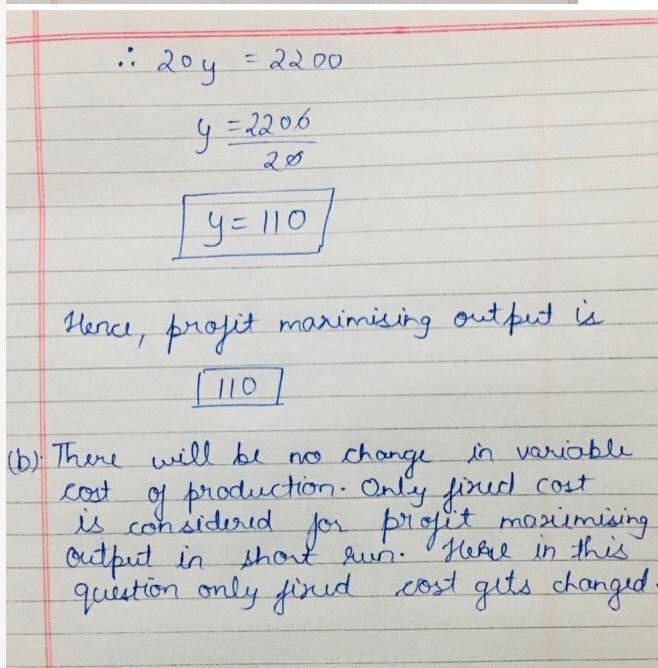 ∴ 20y = 2200
y = 2200
20
y = 110
Hence, profit maximising output is
110
(b) There will be no change in variable
cost of production. Only fixed cost
is considered for profit maximising
output in short run. Here in this
question only fixed cost gets changed.